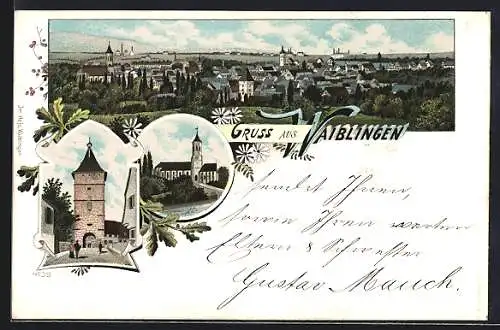 GRUSS AUS WAIBLINGEN
sendet Ihnen,
sowie Ihren werten
Eltern & Schwester
Gustav Mauch.